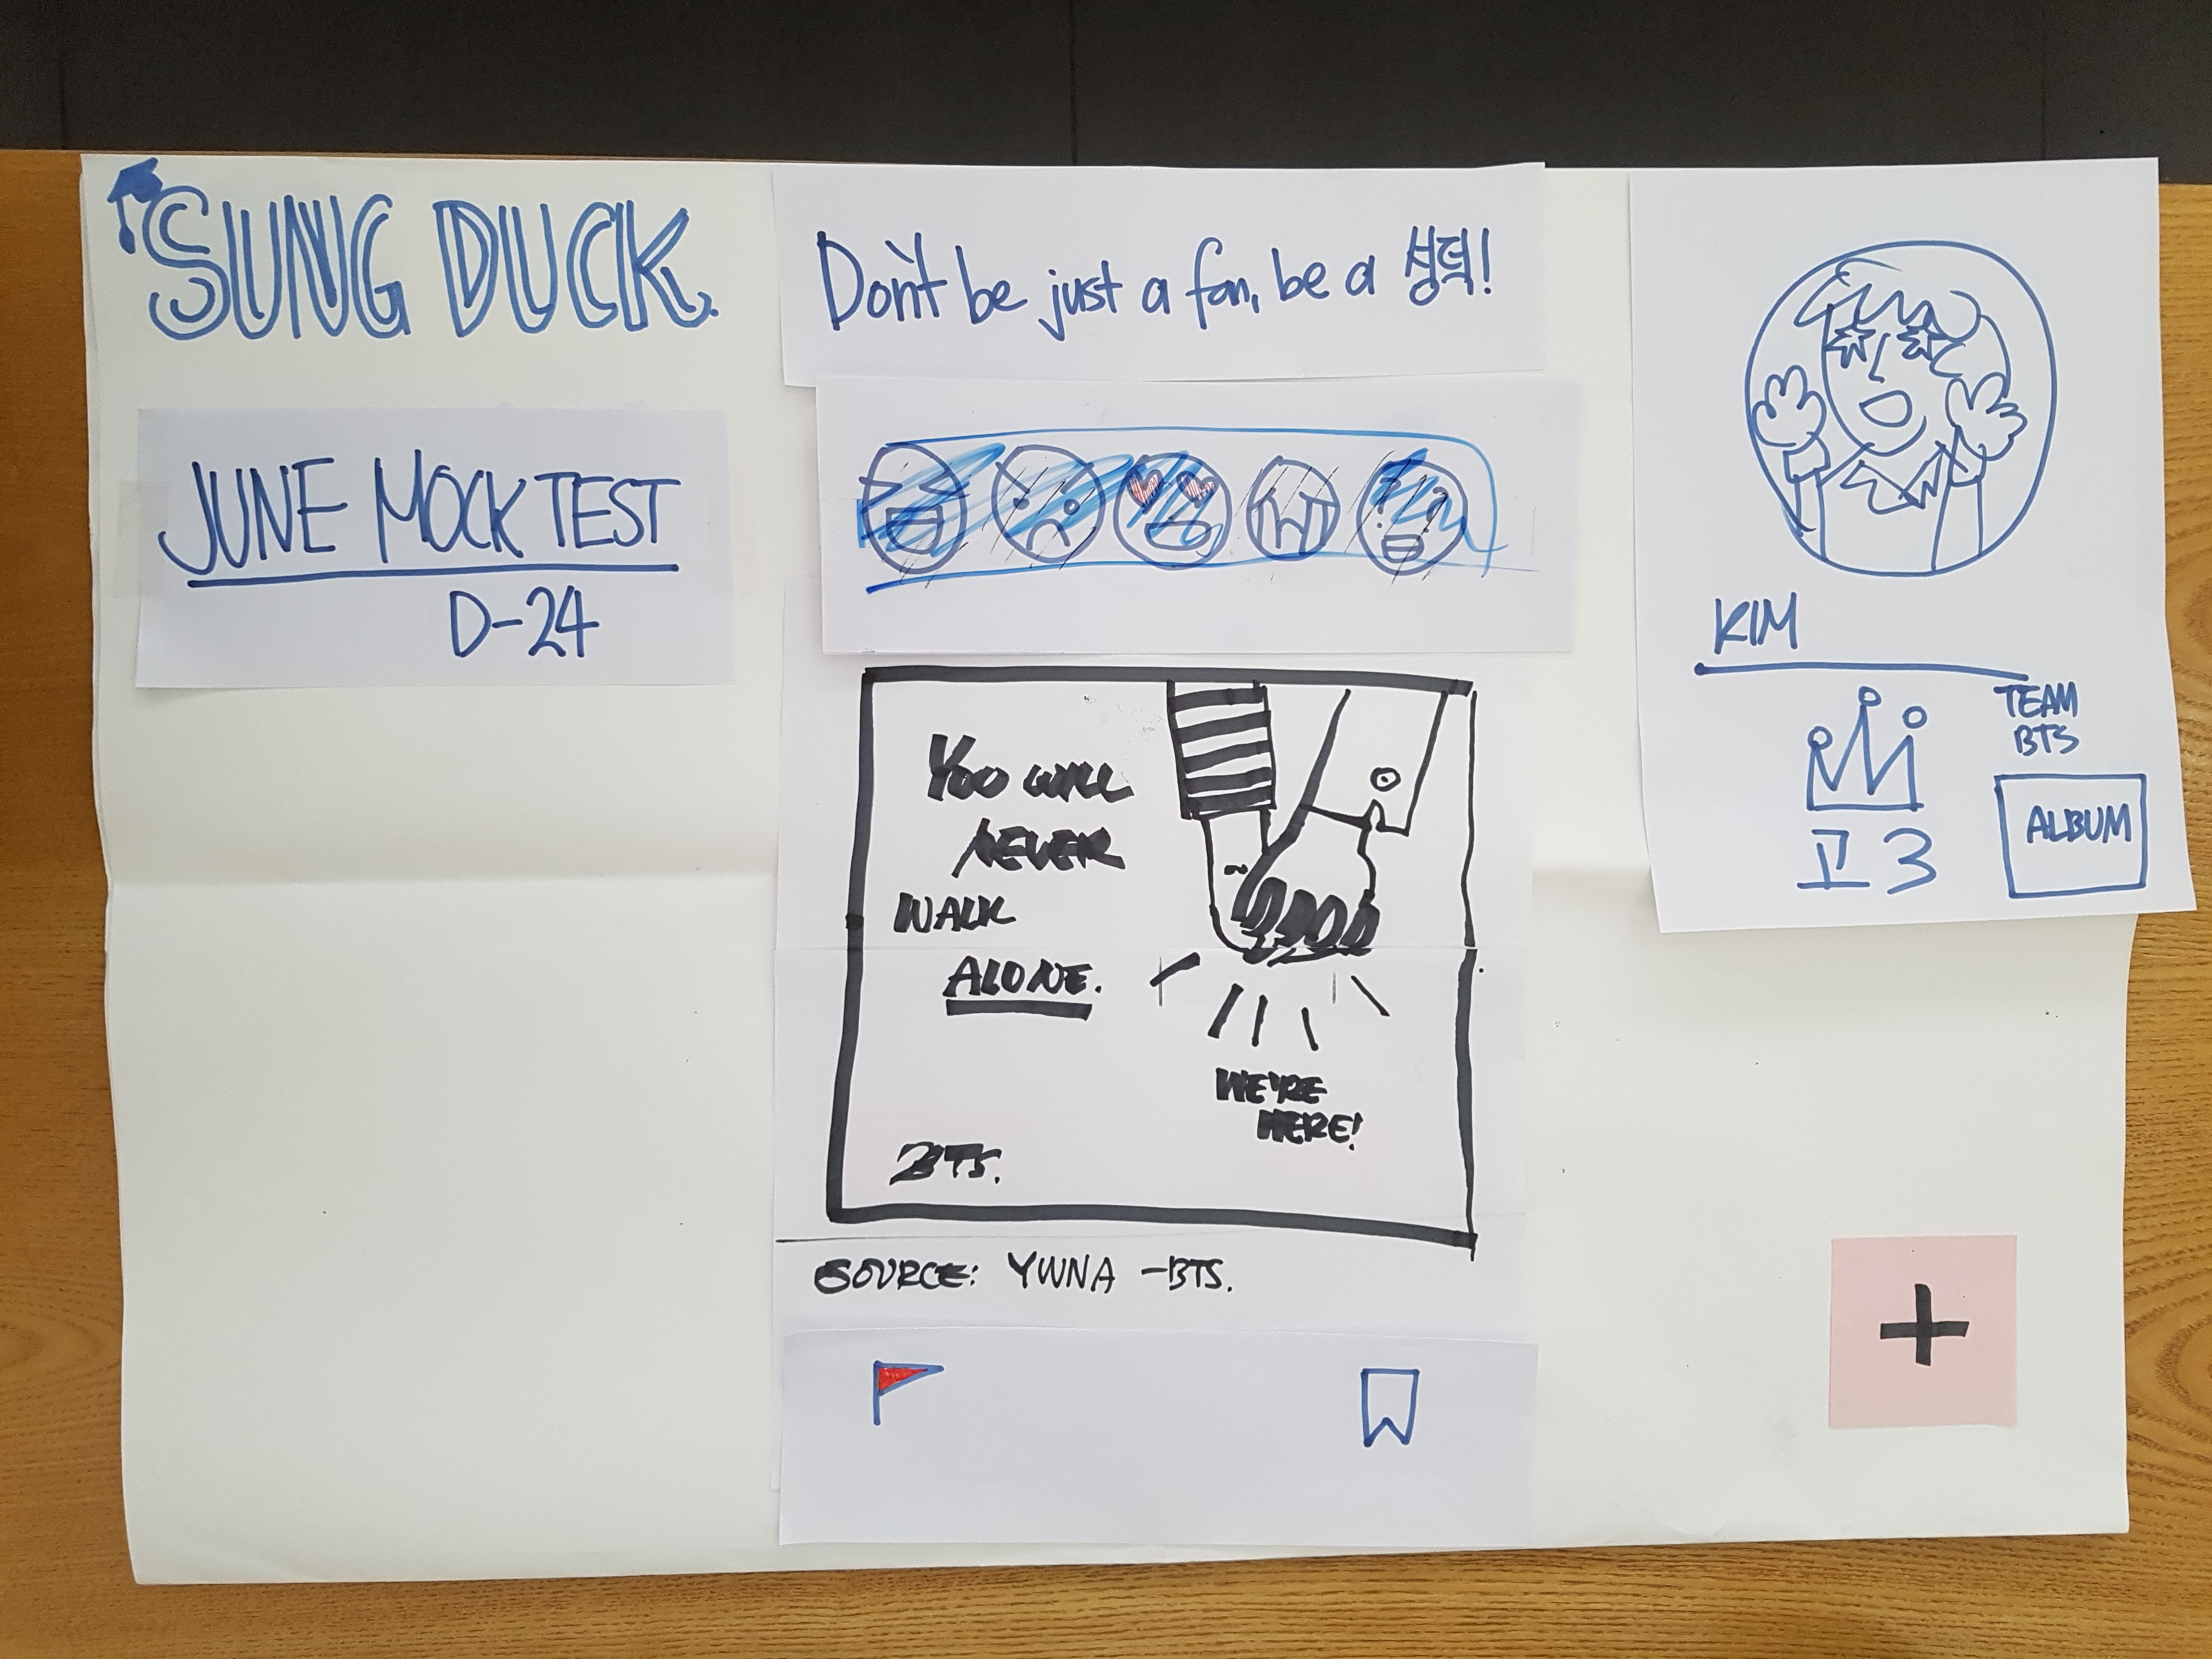 SUNG DUCK.
JUNE MOCK TEST
D-24
Don't be just a fan, be a 성덕!
YOU WILL
NEVER
WALK
ALONE.
WE'RE
HERE!
BTS.
SOURCE: YWNA -BTS.
KIM
TEAM
BTS
고3
ALBUM
+